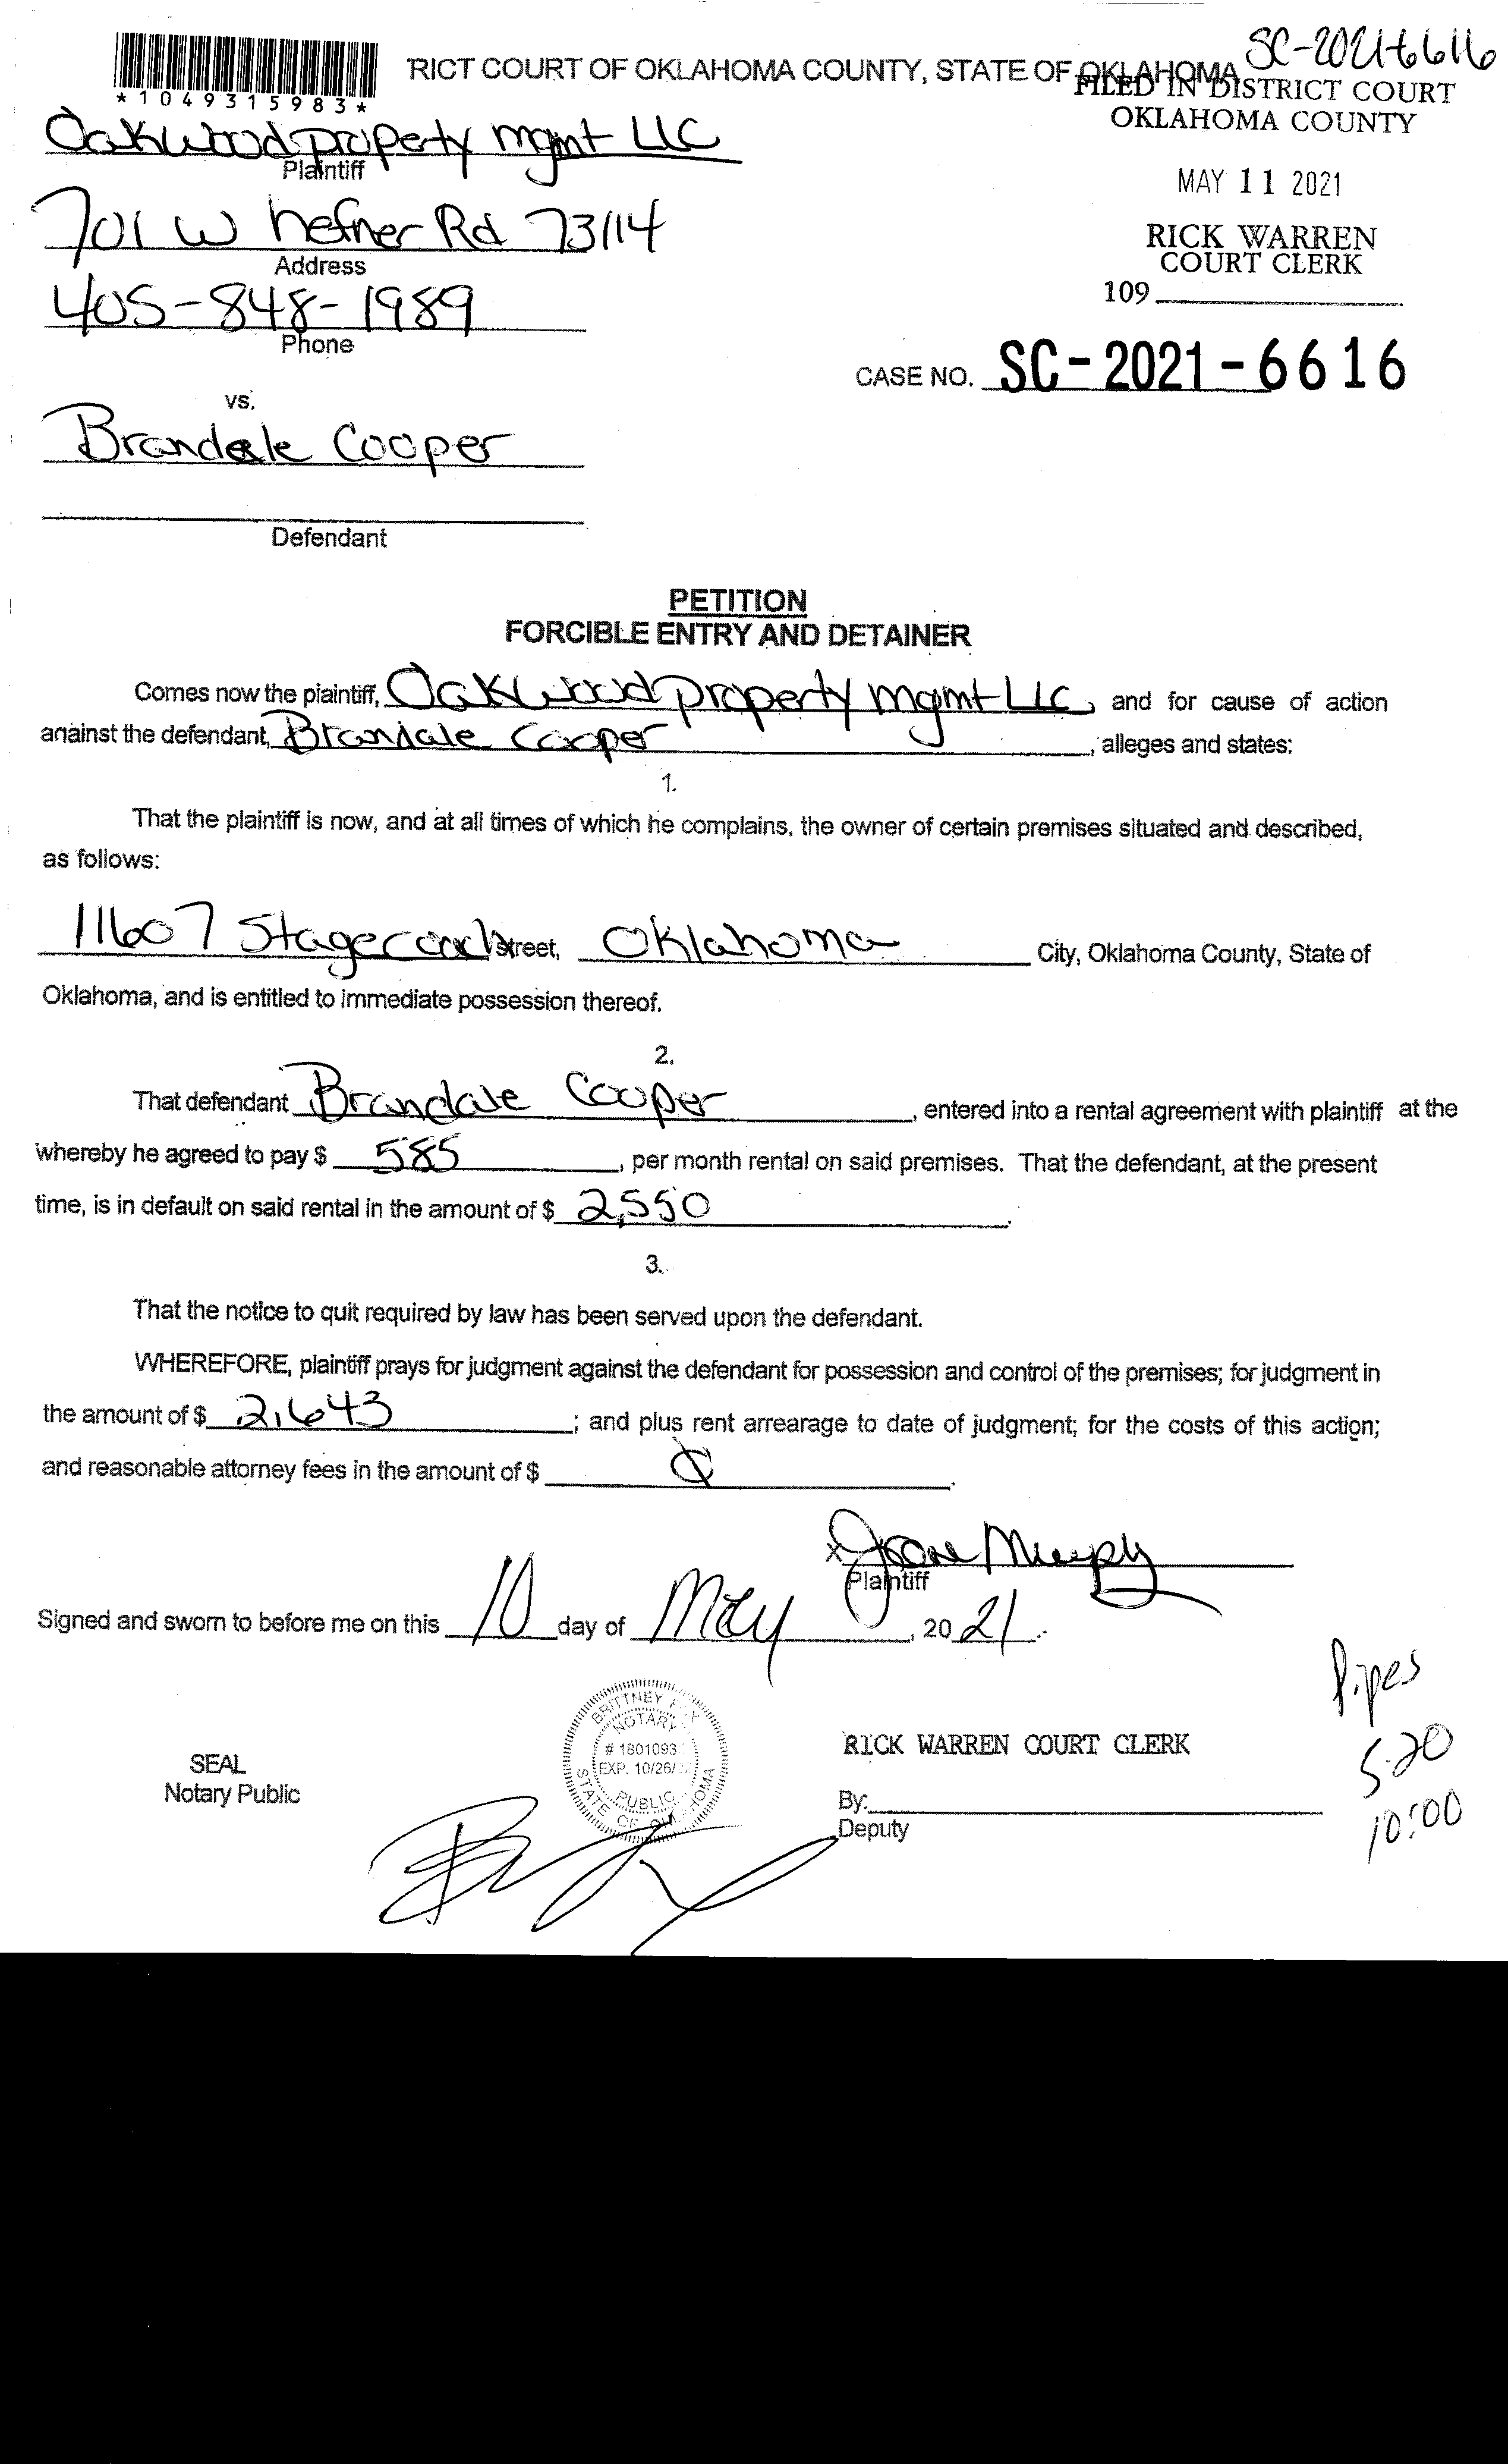 SC-2021-6616
RICT COURT OF OKLAHOMA COUNTY, STATE OF OKLAHOMA
FILED IN DISTRICT COURT
OKLAHOMA COUNTY
*1049315983*
Oakwood property mgmt LLC
Plaintiff
MAY 11 2021
701 W hefner Rd 73114
Address
RICK WARREN
COURT CLERK
405-848-1989
Phone
109
CASE NO. SC-2021-6616
vs.
Brandale Cooper
Defendant
PETITION
FORCIBLE ENTRY AND DETAINER
Comes now the plaintiff, Oakwood property mgmt LLC, and for cause of action
against the defendant, Brandale Cooper, alleges and states:
1.
That the plaintiff is now, and at all times of which he complains, the owner of certain premises situated and described,
as follows:
11607 Stagecoach street, Oklahoma City, Oklahoma County, State of
Oklahoma, and is entitled to immediate possession thereof.
2.
That defendant Brandale Cooper, entered into a rental agreement with plaintiff at the
whereby he agreed to pay $ 585, per month rental on said premises. That the defendant, at the present
time, is in default on said rental in the amount of $ 2,550.
3.
That the notice to quit required by law has been served upon the defendant.
WHEREFORE, plaintiff prays for judgment against the defendant for possession and control of the premises; for judgment in
the amount of $ 2,643; and plus rent arrearage to date of judgment; for the costs of this action;
and reasonable attorney fees in the amount of $ 0.
x
Plaintiff
Signed and sworn to before me on this 10 day of May, 2021.
Pipes
5-20
10:00
BRITTNEY
NOTARY
# 1801093
EXP. 10/26/
PUBLIC
STATE OF OKLAHOMA
SEAL
Notary Public
RICK WARREN COURT CLERK
By:
Deputy